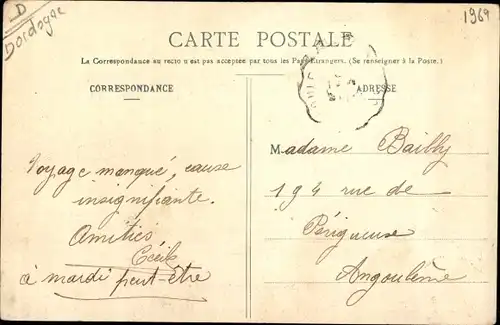 D
Dordogne
1969
CARTE POSTALE
La Correspondance au recto n'est pas acceptée par tous les Pays Étrangers. (Se renseigner à la Poste.)
CORRESPONDANCE
ADRESSE
Voyage manqué, cause
insignifiante.
Amitiés
Cécile
à mardi peut-être
Madame Bailly
194 rue de
Périgueuse
Angoulême